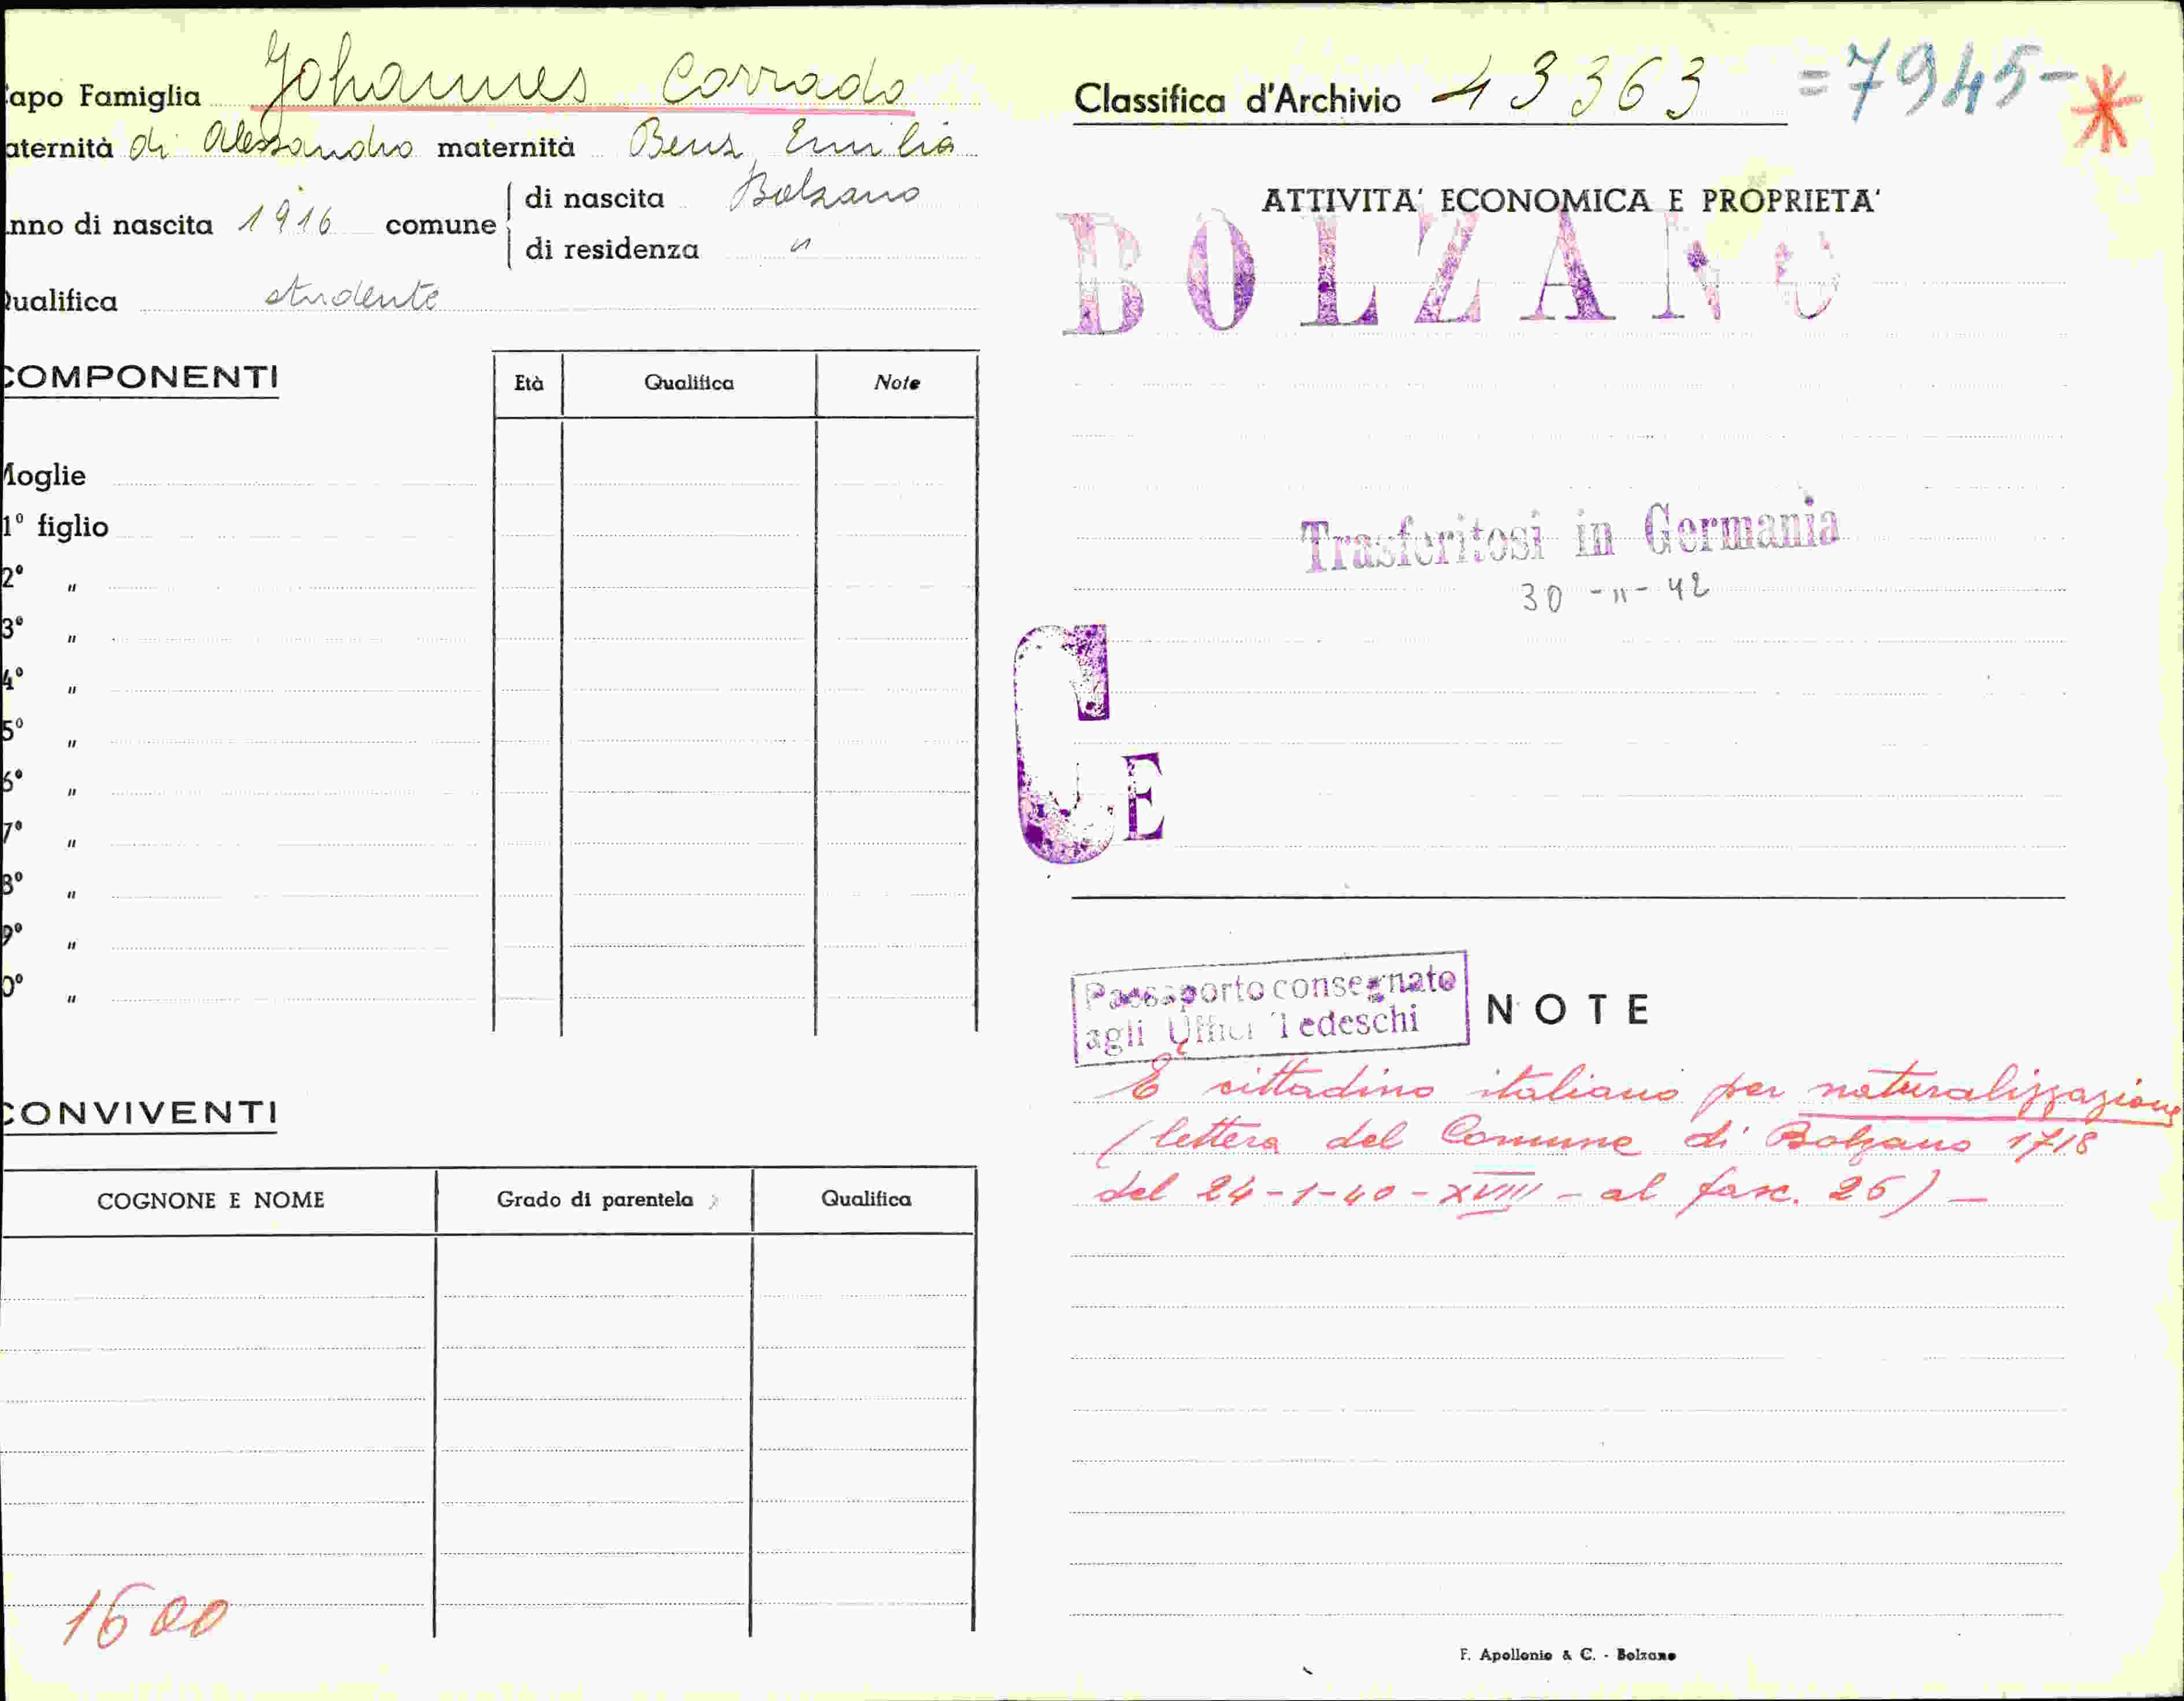 apo Famiglia Johannes Corrado
aternità di Alessandro maternità Benz Emilia
nno di nascita 1916 comune di nascita Bolzano
di residenza "
ualifica studente
COMPONENTI
Età Qualifica Note
Moglie
1º figlio
2º "
3º "
4º "
5º "
6º "
7º "
8º "
9º "
0º "
CONVIVENTI
COGNONE E NOME Grado di parentela Qualifica
1600
Classifica d'Archivio 43363 =7945-*
ATTIVITA' ECONOMICA E PROPRIETA'
BOLZANO
Trasferitosi in Germania
30 -11- 42
C E
Passaporto consegnato
agli Uffici Tedeschi
NOTE
È cittadino italiano per naturalizzazione
(lettera del Comune di Bolzano 1718
del 24-1-40-XVIII - al fasc. 26) -
F. Apollonio & C. - Bolzano